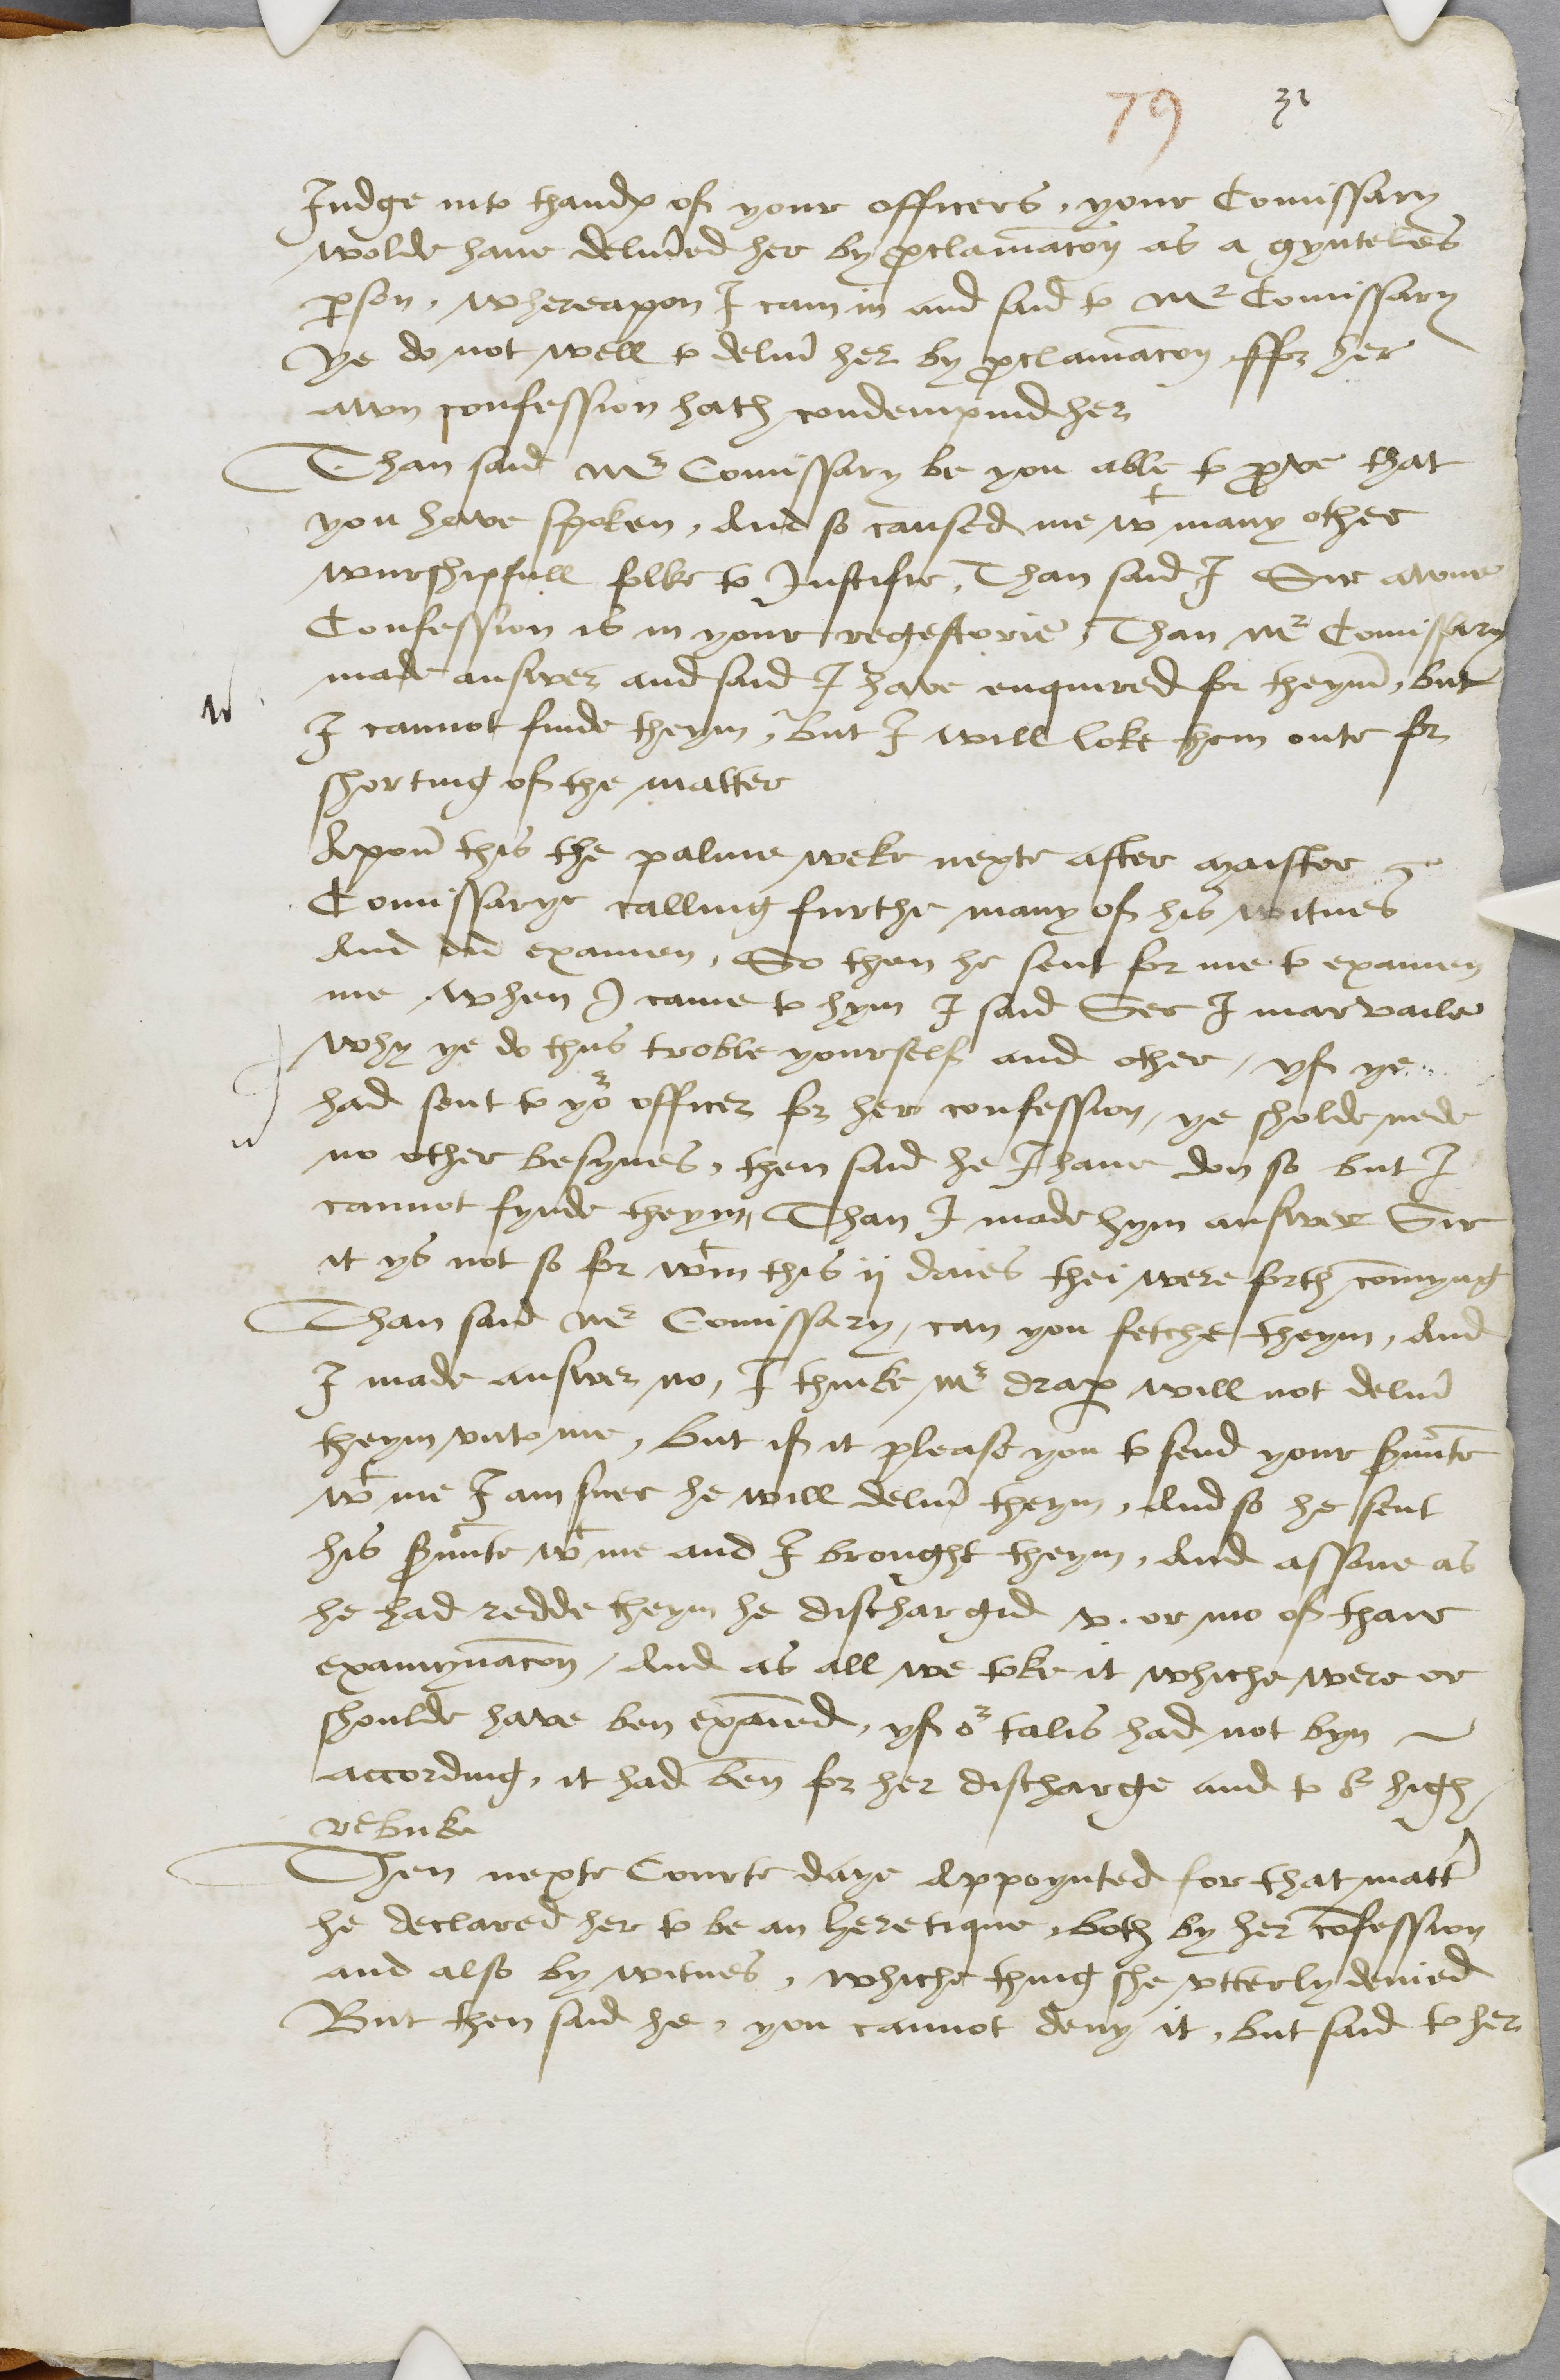 79 31
Judge into thandꝭ of your officers, your Comissary
wolde haue delũed her by ꝓclamacõn as a gynteles
ꝑson, whereapon I cam in and said to Mr Comissary
Ye do not well to delũ her by ꝓclamacõn ffor her
awn confession hath condempnid her
Than said Mr Comissary be you able to ꝓve that
you have spoken, And so caused me wt many other
wurshipfull folke to Justifie, Than said I Sir awne
Confession is in your regestorie, Than Mr Comissary
made answer and said I have enquired for theym, but
I cannot finde theym, but I will loke them oute for
shorting of the matter
Apon this the palme weke nexte after maister
Comissarye calling furthe many of his witnes
And did examen, So then he sent for me to examen
me when I came to hym I said Ser I marvaile
why ye do thus troble yourself and other, yf ye
had sent to yor officer for her confession, ye sholde nede
no other besynes, then said he I haue don so but I
cannot fynde theym, Than I made hym answer Sir
it ys not so for wtin this ij daies thei were forth comyng
Than said Mr Comissary, can you fetche theym, And
I made answer no, I thinke Mr draꝑ will not delũ
theym vnto me, but if it please you to send your sũnte
wt me I am suer he will delũ theym, And so he sent
his sũnte wt me and I brought theym, And assone as
he had redde theym he dischargid v. or mo of thare
examynacõn, And as all we toke it whiche were or
shoulde have ben exaied, yf or talis had not byn
according, it had ben for her discharge and to or high
rebuke
Then nexte Courte daye Appoynted for that matt
he declared her to be an heretique, both by her cõfession
and also by witnes, whiche thing she vtterly denied
But then said he, you cannot deny it, but said to her